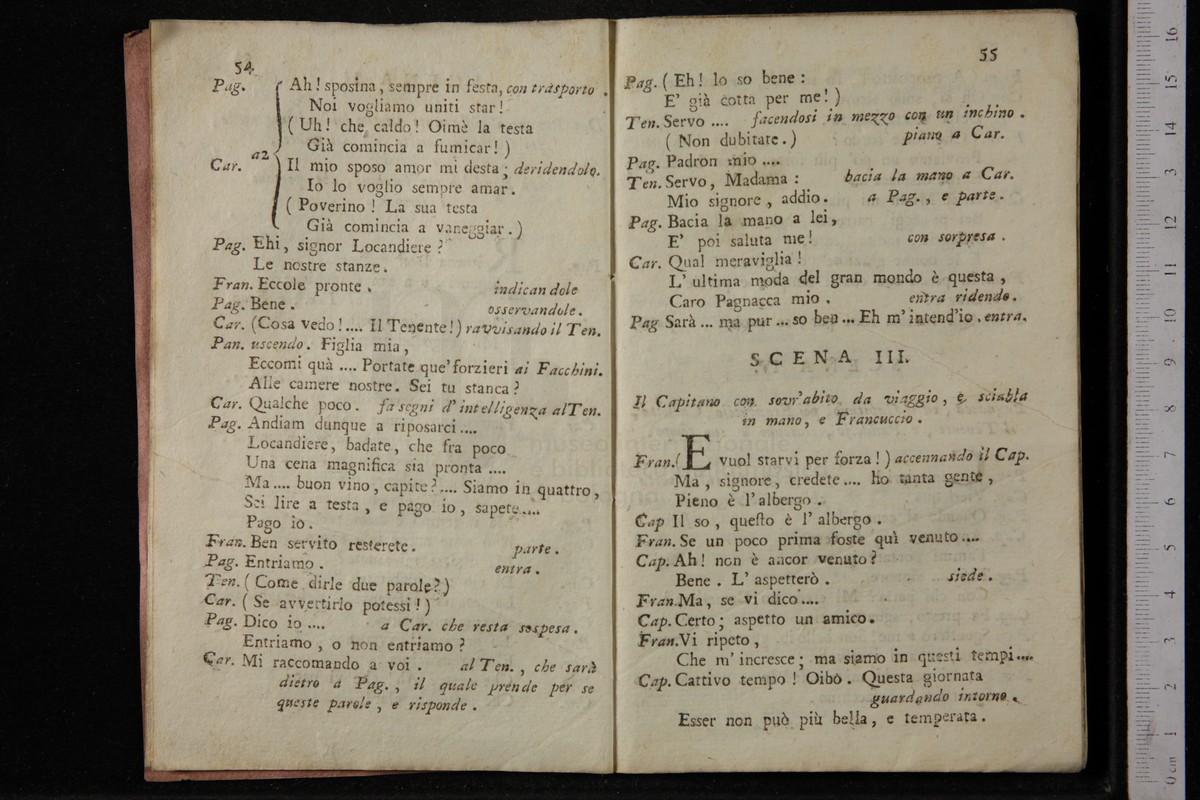 54
Pag. Ah! sposina, sempre in festa, con trasporto.
Noi vogliamo uniti star!
(Uh! che caldo! Oimè la testa
Già comincia a fumicar!)
a2
Car. Il mio sposo amor mi desta; deridendolo.
Io lo voglio sempre amar.
(Poverino! La sua testa
Già comincia a vaneggiar.)
Pag. Ehi, signor Locandiere?
Le nostre stanze.
Fran. Eccole pronte. indicandole
Pag. Bene. osservandole.
Car. (Cosa vedo!.... Il Tenente!) ravvisando il Ten.
Pan. uscendo. Figlia mia,
Eccomi quà .... Portate que' forzieri ai Facchini.
Alle camere nostre. Sei tu stanca?
Car. Qualche poco. fa segni d'intelligenza al Ten.
Pag. Andiam dunque a riposarci....
Locandiere, badate, che fra poco
Una cena magnifica sia pronta ....
Ma.... buon vino, capite?.... Siamo in quattro,
Sei lire a testa, e pago io, sapete....
Pago io.
Fran. Ben servito resterete. parte.
Pag. Entriamo. entra.
Ten. (Come dirle due parole?)
Car. (Se avvertirlo potessi!)
Pag. Dico io .... a Car. che resta sospesa.
Entriamo, o non entriamo?
Car. Mi raccomando a voi. al Ten., che sarà
dietro a Pag., il quale prende per se
queste parole, e risponde.
55
Pag. (Eh! lo so bene:
E' già cotta per me!)
Ten. Servo .... facendosi in mezzo con un inchino.
(Non dubitate.) piano a Car.
Pag. Padron mio ....
Ten. Servo, Madama: bacia la mano a Car.
Mio signore, addio. a Pag., e parte.
Pag. Bacia la mano a lei,
E' poi saluta me! con sorpresa.
Car. Qual meraviglia!
L'ultima moda del gran mondo è questa,
Caro Pagnacca mio. entra ridendo.
Pag Sarà ... ma pur ... so ben ... Eh m'intend'io. entra.
SCENA III.
Il Capitano con sovr'abito da viaggio, e sciabla
in mano, e Francuccio.
Fran. (E vuol starvi per forza!) accennando il Cap.
Ma, signore, credete.... ho tanta gente,
Pieno è l'albergo.
Cap Il so, questo è l'albergo.
Fran. Se un poco prima foste quì venuto....
Cap. Ah! non è ancor venuto?
Bene. L'aspetterò. siede.
Fran. Ma, se vi dico....
Cap. Certo; aspetto un amico.
Fran. Vi ripeto,
Che m'incresce; ma siamo in questi tempi....
Cap. Cattivo tempo! Oibò. Questa giornata
guardando intorno.
Esser non può più bella, e temperata.